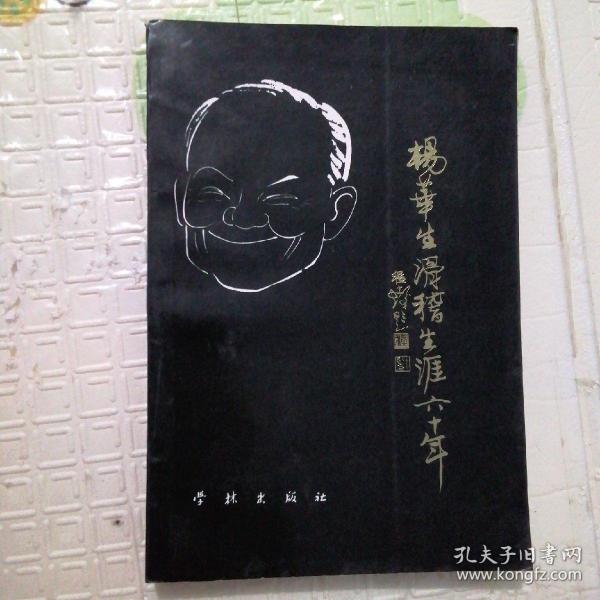 楊華生滑稽生涯六十年
学林出版社
孔夫子旧书网
www.kongfz.com